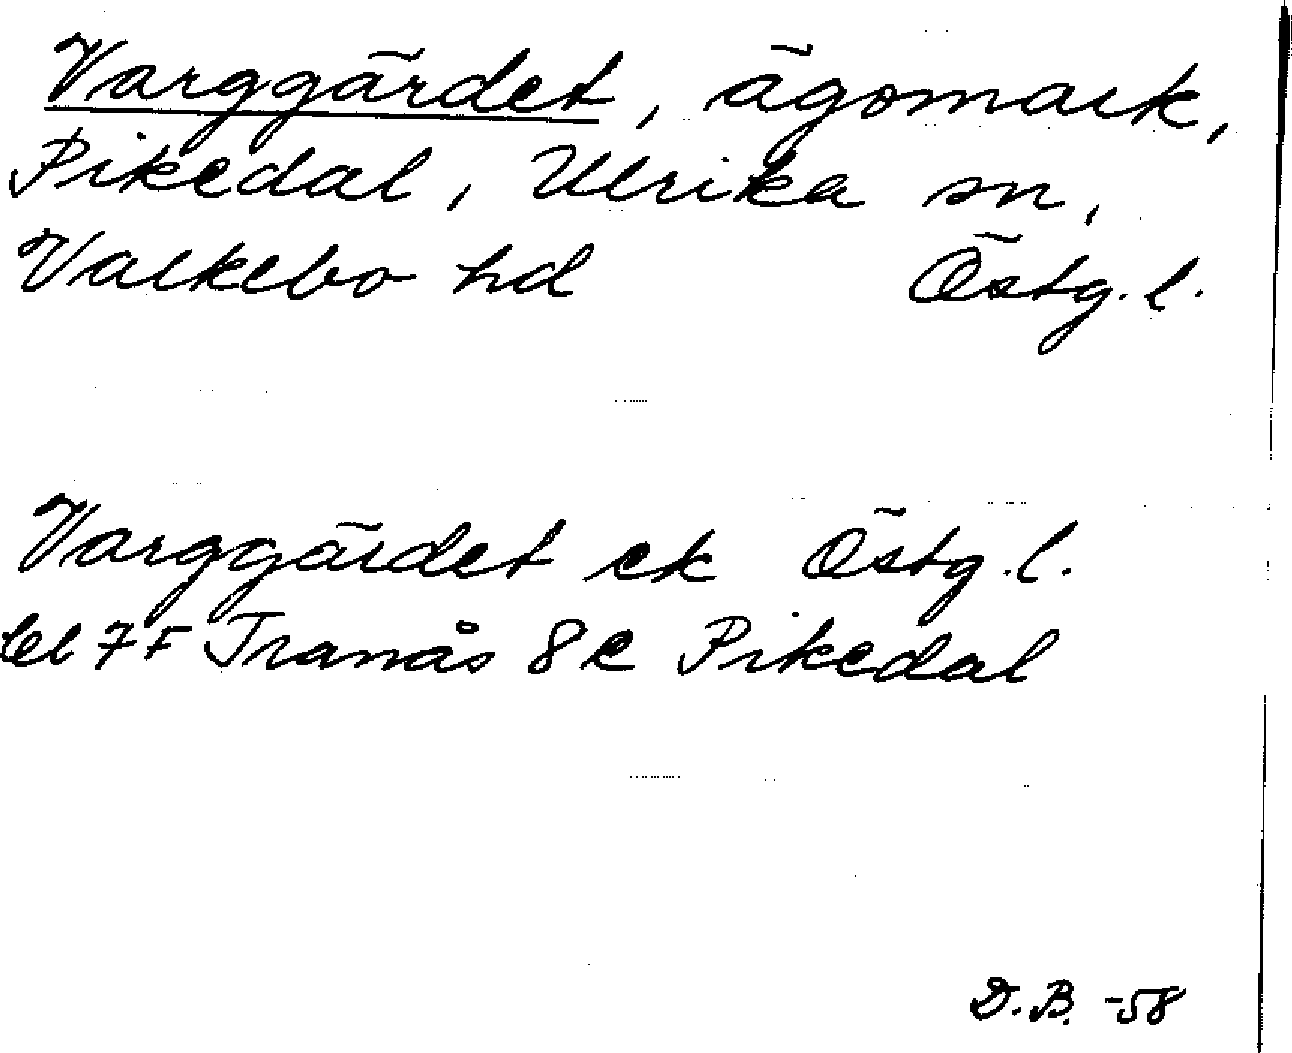 Varggärdet, ägomark,
Pikedal, Ulrika sn,
Valkebo hd Östg. l.
Varggärdet ek Östg. l.
bl 7 F Tranås 8 e Pikedal
D. B. -58